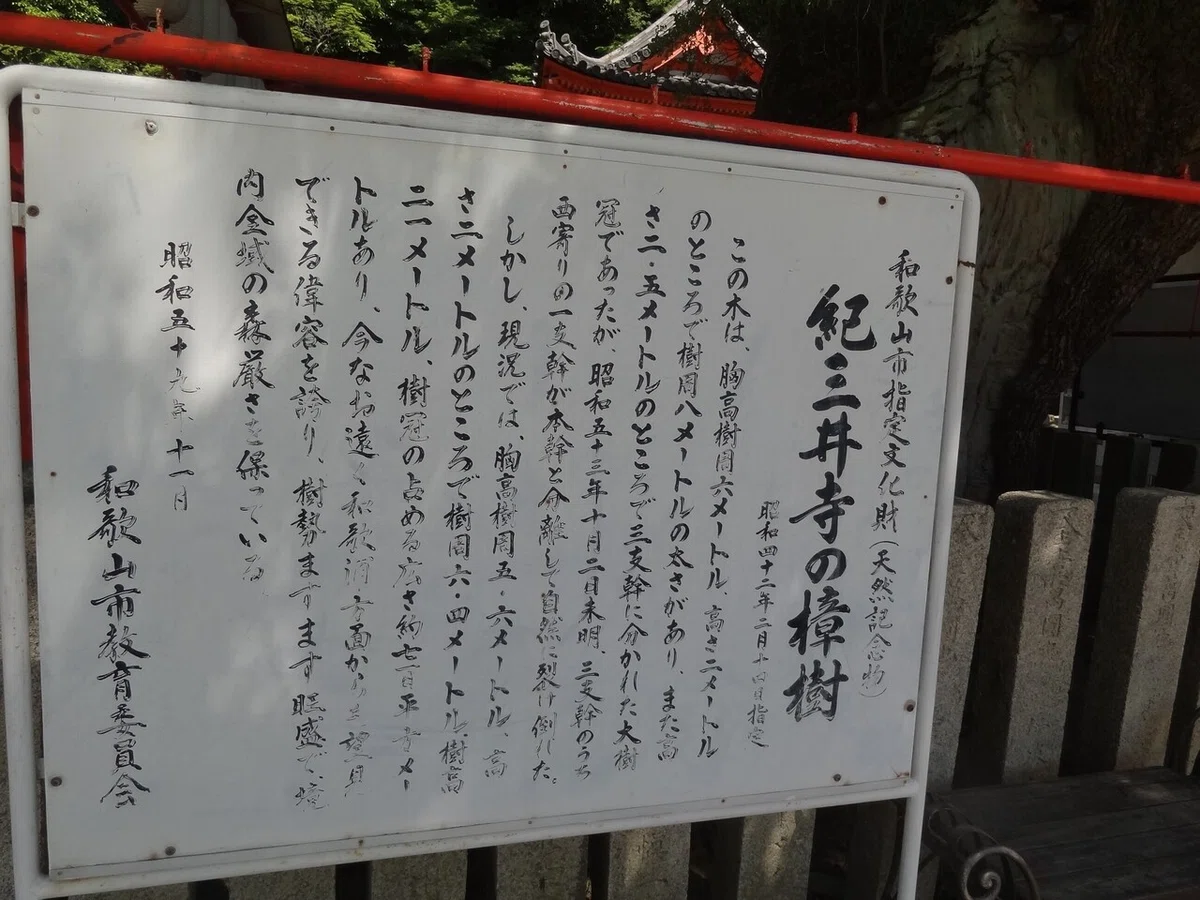 和歌山市指定文化財(天然記念物)
紀三井寺の樟樹
昭和四十二年二月十四日指定
この木は、胸高樹周六メートル、高さ二メートル
のところで樹周八メートルの太さがあり、また高
さ二・五メートルのところで三支幹に分かれた大樹
冠であったが、昭和五十三年十月二日未明、三支幹のうち
西寄りの一支幹が本幹と分離して自然に裂け倒れた。
しかし、現況では、胸高樹周五・六メートル、高
さ二メートルのところで樹周六・四メートル、樹高
二一メートル、樹冠の占める広さ約七百平方メー
トルあり、今なお遠く和歌浦方面からも望見
できる偉容を誇り、樹勢ますます旺盛で、境
内全域の森厳さを保っている。
昭和五十九年十一月
和歌山市教育委員会